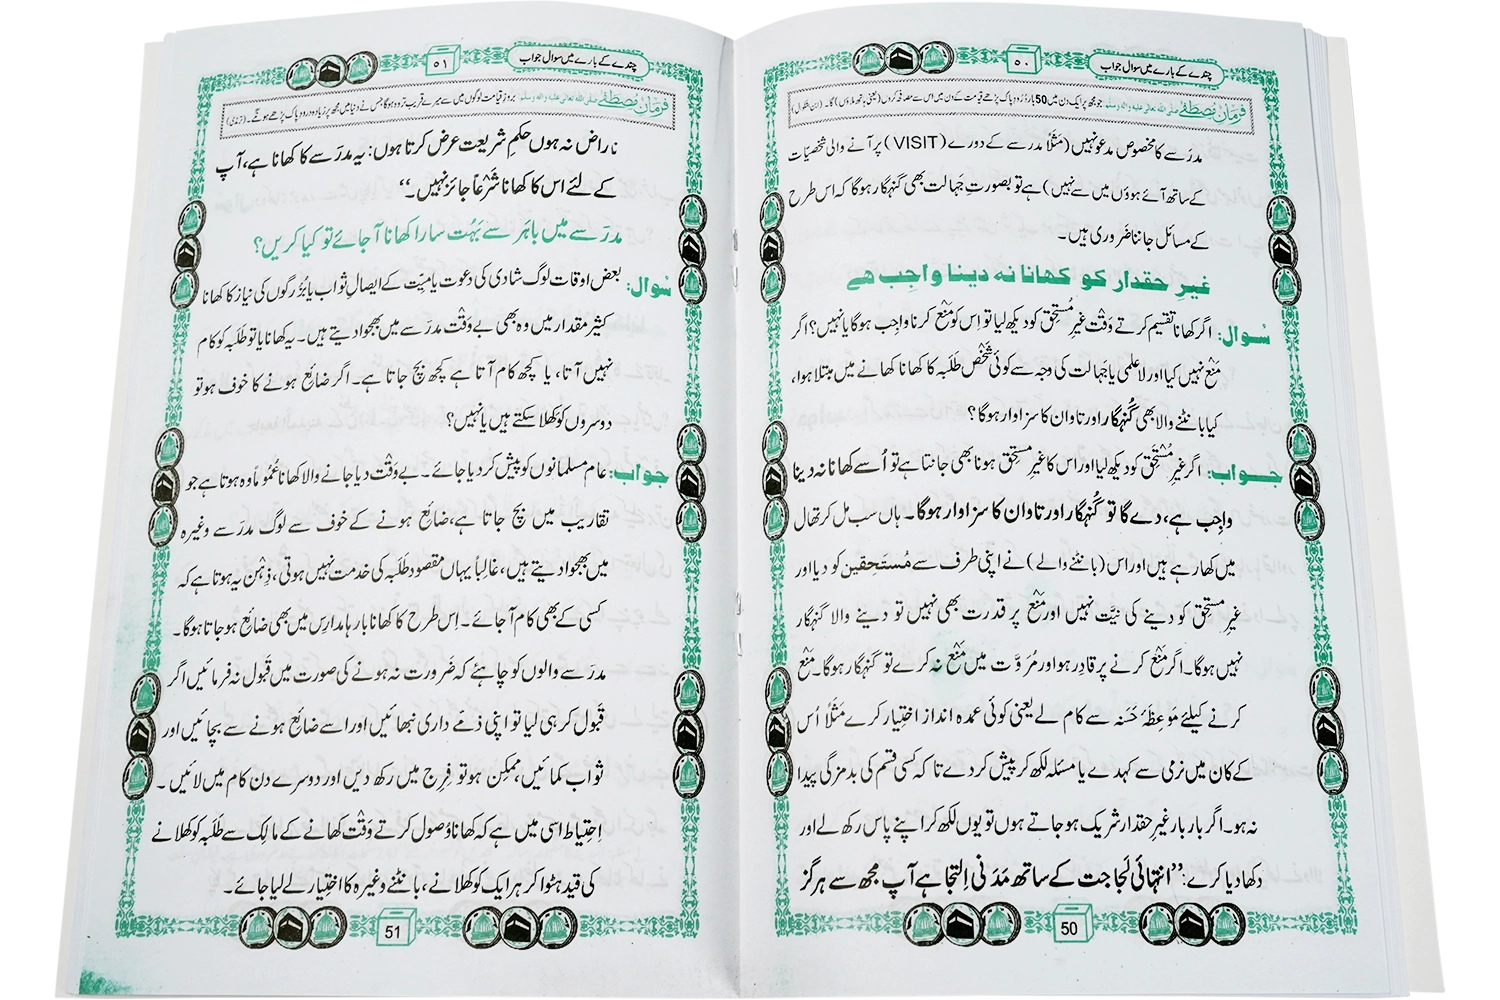 چندے کے بارے میں سوال جواب
۵۰
فرمانِ مصطفٰے صلی اللہ تعالیٰ علیہ والہ وسلم: جو مجھ پر ایک دن میں 50 بار دُرود پاک پڑھے قیامت کے دن میں اس سے مصافحہ کروں (یعنی ہاتھ ملاؤں) گا۔ (ابن بشکوال)
مدرَسے کا مخصوص مدعو نہیں (مَثَلاً مدرسے کے دورے (VISIT) پر آنے والی شخصیّات
کے ساتھ آئے ہوؤں میں سے نہیں) ہے تو بصورتِ جَہالت بھی گنہگار ہوگا کہ اس طرح
کے مسائل جاننا ضَروری ہیں۔
غیرِ حقدار کو کھانا نہ دینا واجِب ہے
سُوال: اگر کھانا تقسیم کرتے وَقْت غیرِ مُستحِق کو دیکھ لیا تو اِس کو مَنْع کرنا واجِب ہوگا یا نہیں؟ اگر
مَنْع نہیں کیا اور لاعلمی یا جَہالت کی وجہ سے کوئی شَخْص طَلَبہ کا کھانا کھانے میں مبتَلا ہوا،
کیا بانٹنے والا بھی گُنہگار اور تاوان کا سزاوار ہوگا؟
جواب: اگر غیرِ مُسْتَحِق کو دیکھ لیا اور اس کا غیرِ مُستحِق ہونا بھی جانتا ہے تو اُسے کھانا نہ دینا
واجِب ہے، دے گا تو گُنہگار اور تاوان کا سزاوار ہوگا۔ ہاں سب مل کر تھال
میں کھا رہے ہیں اور اس (بانٹنے والے) نے اپنی طرف سے مُستَحِقین کو دیا اور
غیرِ مستحِق کو دینے کی نیَّت نہیں اور مَنْع پر قدرت بھی نہیں تو دینے والا گنہگار
نہیں ہوگا۔ اگر مَنْع کرنے پر قادِر ہو اور مُرَوَّت میں مَنْع نہ کرے تو گنہگار ہوگا۔ مَنْع
کرنے کیلئے مَوعِظَۂ حَسَنہ سے کام لے یعنی کوئی عمدہ انداز اختِیار کرے مَثَلاً اُس
کے کان میں نرمی سے کہدے یا مسئلہ لکھ کر پیش کردے تاکہ کسی قسم کی بدمزگی پیدا
نہ ہو۔ اگر بار بار غیرِ حقدار شریک ہوجاتے ہوں تو یوں لکھ کر اپنے پاس رکھ لے اور
دکھا دیا کرے: ’’انتہائی لَجاجت کے ساتھ مَدَنی اِلتجا ہے آپ مجھ سے ہرگز
50
چندے کے بارے میں سوال جواب
۵۱
فرمانِ مصطفٰے صلی اللہ تعالیٰ علیہ والہ وسلم: بروزِ قیامت لوگوں میں سے میرے قریب تر وہ ہوگا جس نے دنیا میں مجھ پر زیادہ درود پاک پڑھے ہونگے۔ (ترمذی)
ناراض نہ ہوں حکمِ شریعت عرض کرتا ہوں: یہ مدرَسے کا کھانا ہے، آپ
کے لئے اس کا کھانا شَرْعاً جائز نہیں۔‘‘
مدرَسے میں باہَر سے بَہُت سارا کھانا آجائے تو کیا کریں؟
سُوال: بعض اوقات لوگ شادی کی دعوت یا میِّت کے ایصالِ ثواب یا بُزُرگوں کی نیاز کا کھانا
کثیر مقدار میں وہ بھی بے وَقْت مدرَسے میں بھجوا دیتے ہیں۔ یہ کھانا یا تو طَلَبہ کو کام
نہیں آتا، یا کچھ کام آتا ہے کچھ بچ جاتا ہے۔ اگر ضائِع ہونے کا خوف ہو تو
دوسروں کو کھلا سکتے ہیں یا نہیں؟
جواب: عام مسلمانوں کو پیش کردیا جائے۔ بے وَقْت دیا جانے والا کھانا عُمُوماً وہ ہوتا ہے جو
تقاریب میں بچ جاتا ہے، ضائِع ہونے کے خوف سے لوگ مدرَسے وغیرہ
میں بھجوا دیتے ہیں، غالِباً یہاں مقصود طَلَبہ کی خدمت نہیں ہوتی، ذِہْن یہ ہوتا ہے کہ
کسی کے بھی کام آجائے۔ اِس طرح کا کھانا بارہا مدارِس میں بھی ضائِع ہو جاتا ہوگا۔
مدرَسے والوں کو چاہئے کہ ضَرورت نہ ہونے کی صورت میں قَبول نہ فرمائیں اگر
قَبول کر ہی لیا تو اپنی ذمّے داری نبھائیں اور اسے ضائِع ہونے سے بچائیں اور
ثواب کمائیں، ممکِن ہو تو فِرِج میں رکھ دیں اور دوسرے دن کام میں لائیں۔
اِحتِیاط اسی میں ہے کہ کھانا وُصول کرتے وَقْت کھانے کے مالِک سے طَلَبہ کو کھلانے
کی قید ہٹوا کر ہر ایک کو کھلانے، بانٹنے وغیرہ کا اختِیار لے لیا جائے۔
51